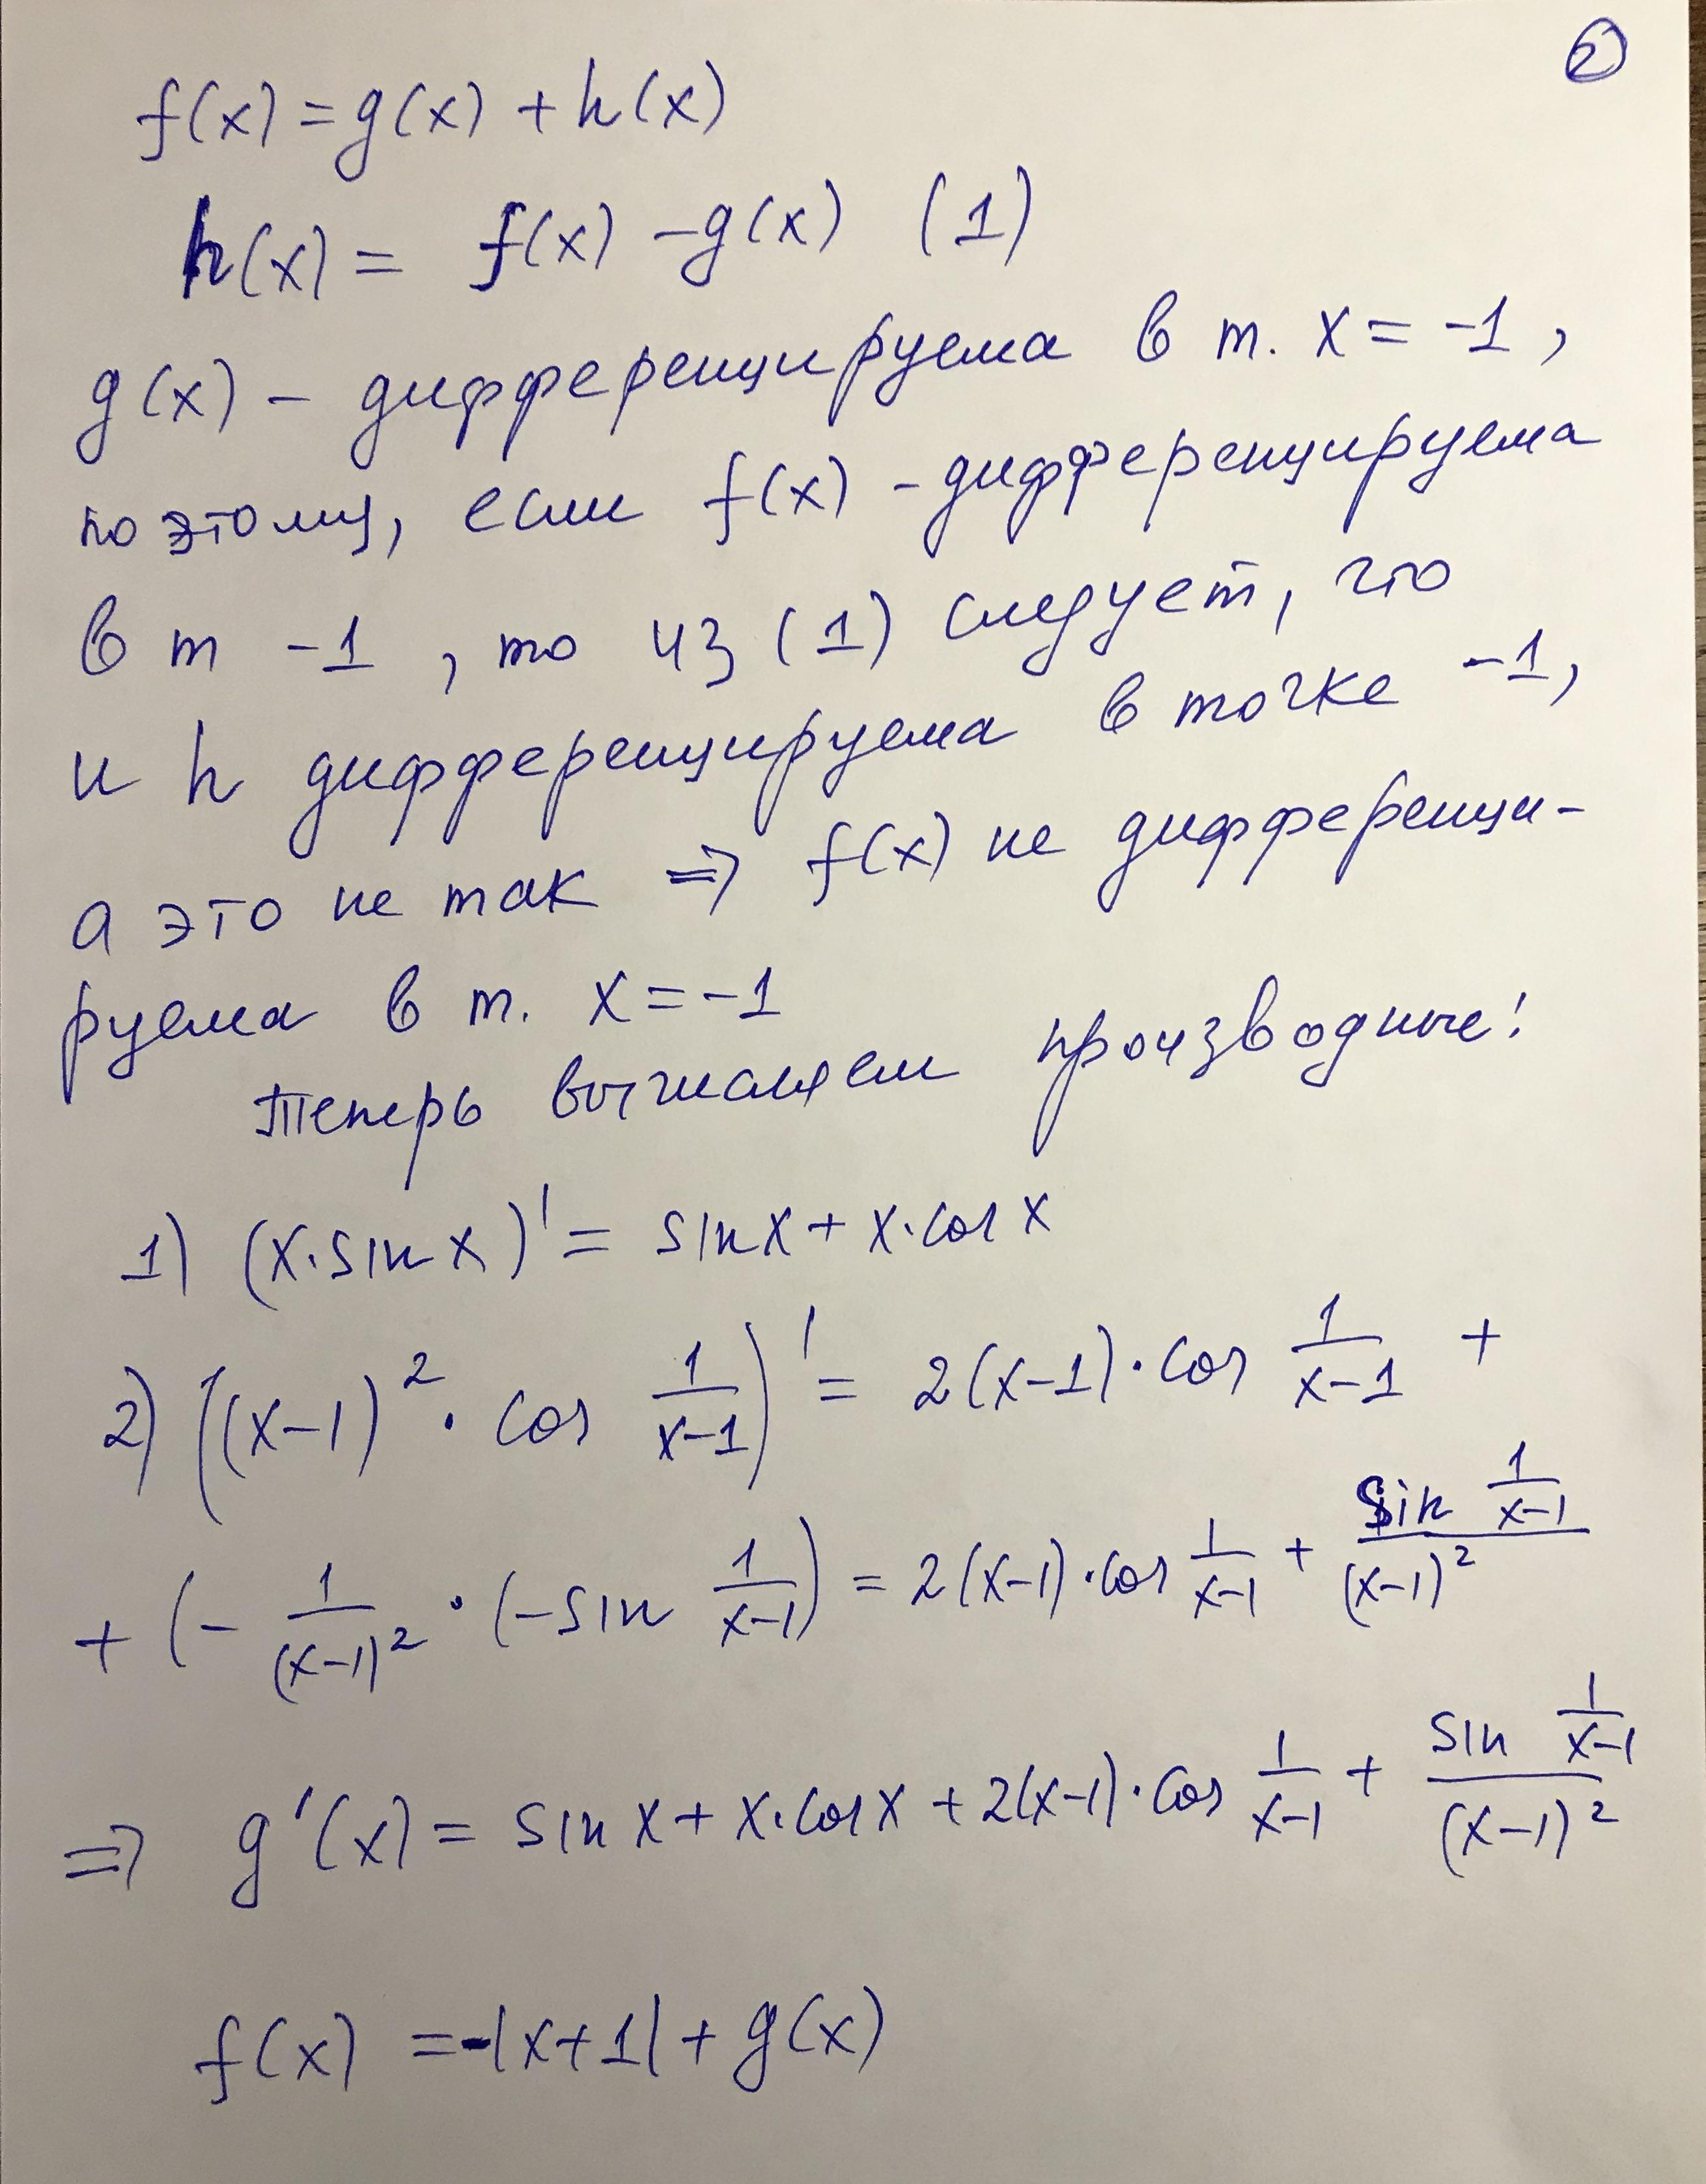 ②
f(x) = g(x) + h(x)
h(x) = f(x) - g(x) (1)
g(x) - дифференцируема в т. x = -1,
поэтому, если f(x) - дифференцируема
в т -1, то из (1) следует, что
и h дифференцируема в точке -1,
а это не так => f(x) не дифференци-
руема в т. x = -1
Теперь вычисляем производные:
1) (x·sin x)' = sin x + x·cos x
2) ((x-1)^2 · cos 1/(x-1))' = 2(x-1)·cos 1/(x-1) +
+ (-1/(x-1)^2 · (-sin 1/(x-1)) = 2(x-1)·cos 1/(x-1) + (sin 1/(x-1))/(x-1)^2
=> g'(x) = sin x + x·cos x + 2(x-1)·cos 1/(x-1) + (sin 1/(x-1))/(x-1)^2
f(x) = -|x+1| + g(x)